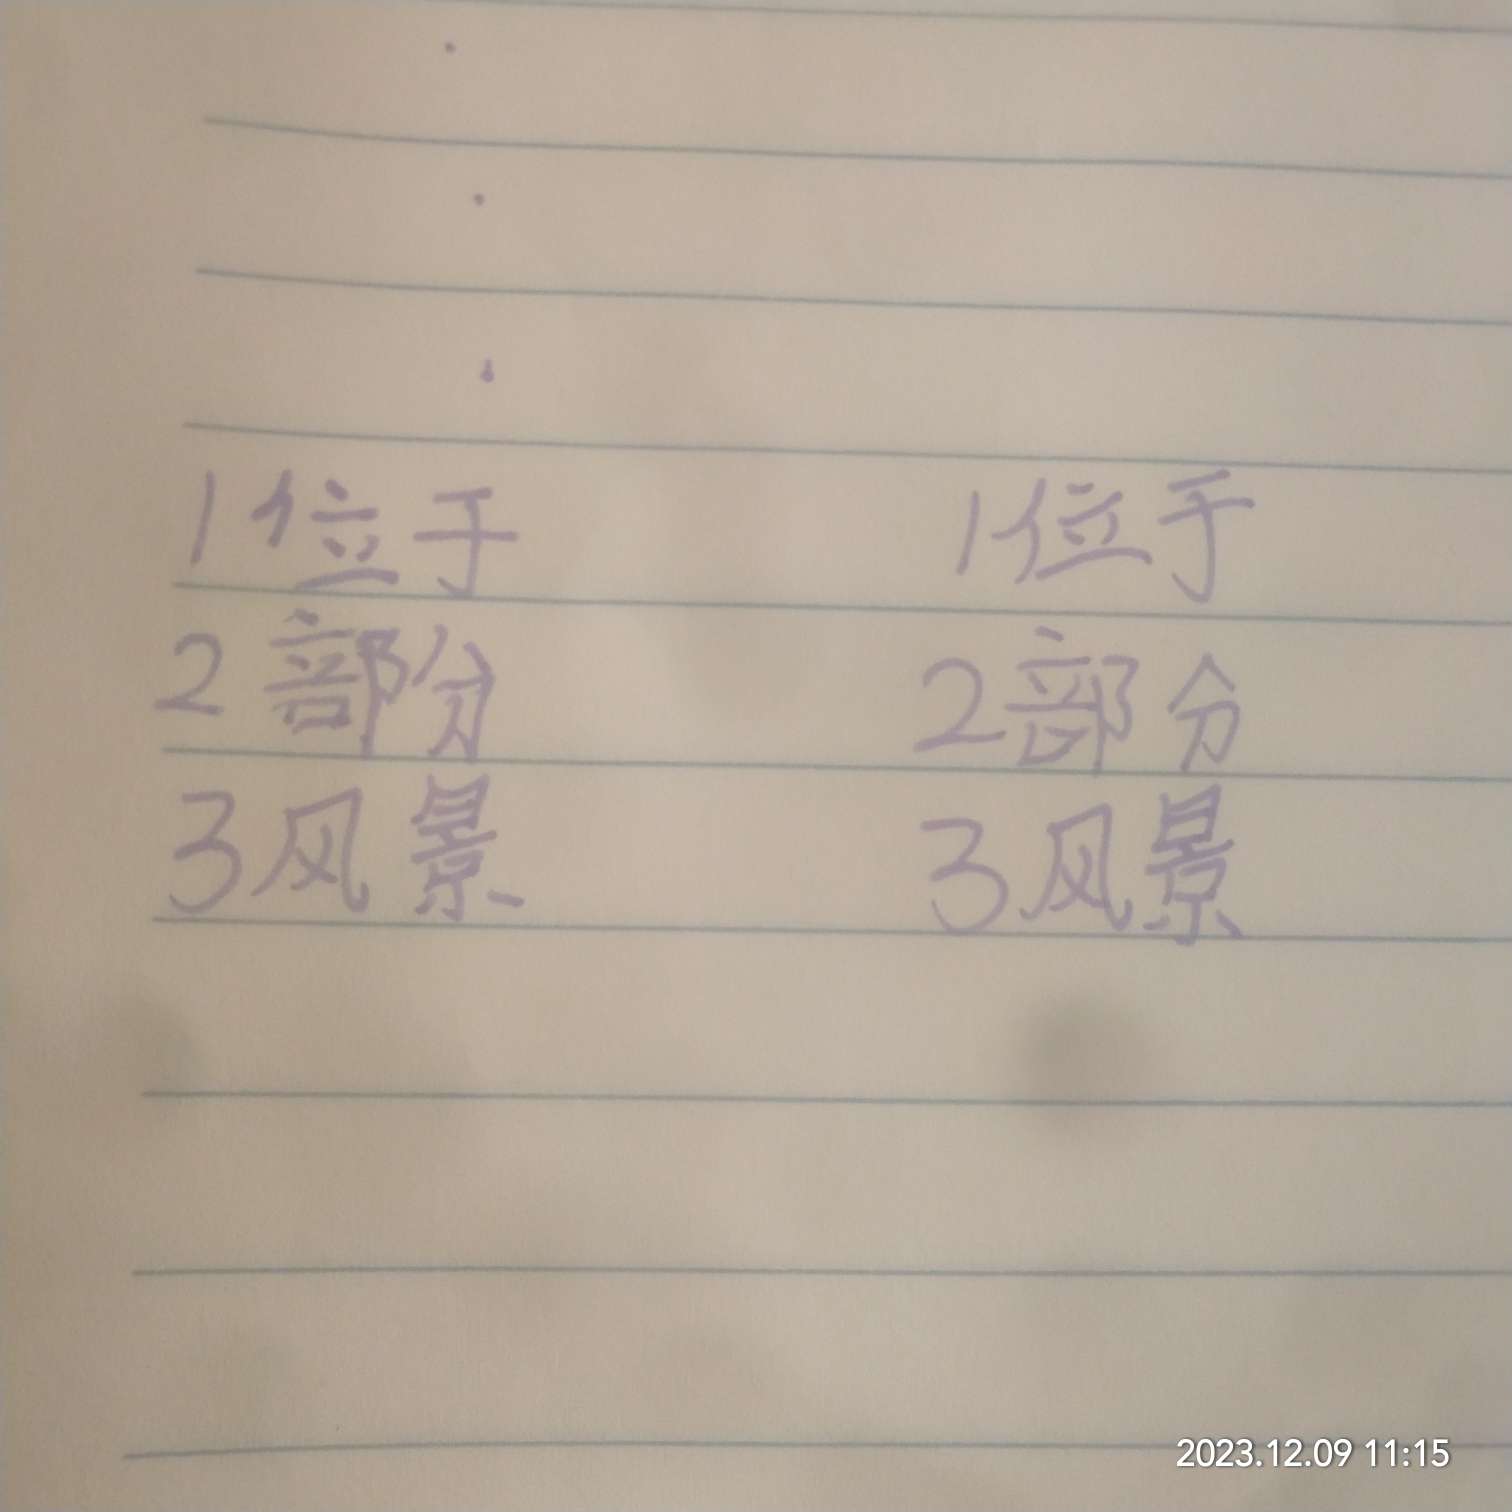 1 位于 1 位于
2 部分 2 部分
3 风景 3 风景
2023.12.09 11:15